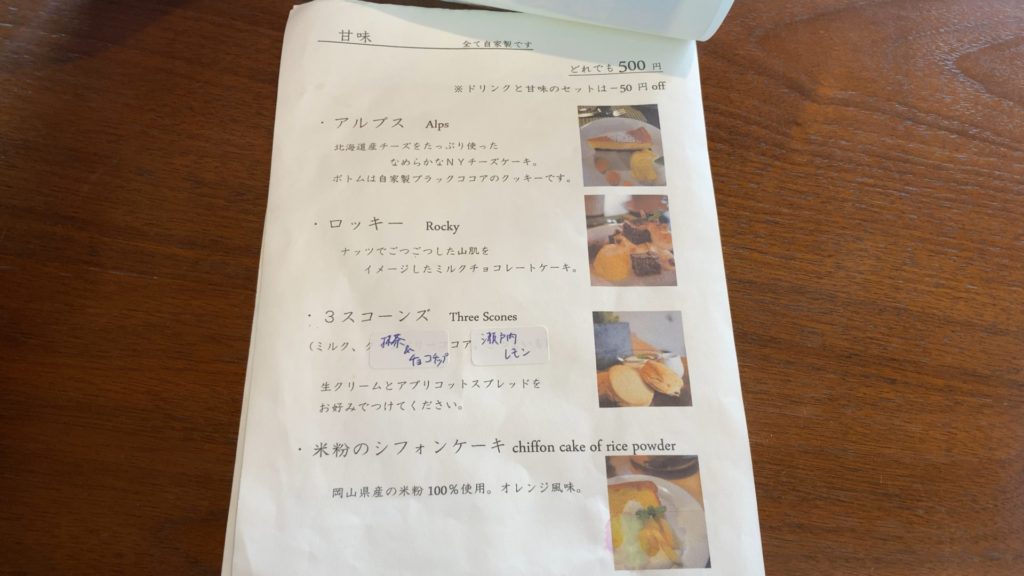 甘味
全て自家製です
どれでも 500 円
※ドリンクと甘味のセットは－50 円 off
・アルプス Alps
北海道産チーズをたっぷり使った
なめらかなＮＹチーズケーキ。
ボトムは自家製ブラックココアのクッキーです。
・ロッキー Rocky
ナッツでごつごつした山肌を
イメージしたミルクチョコレートケーキ。
・３スコーンズ Three Scones
(ミルク、 抹茶 ココア 瀬戸内
チョコチップ レモン
生クリームとアプリコットスプレッドを
お好みでつけてください。
・米粉のシフォンケーキ chiffon cake of rice powder
岡山県産の米粉 100％使用。オレンジ風味。